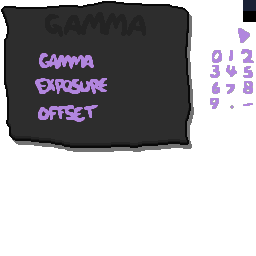 GAMMA
GAMMA
EXPOSURE
OFFSET
0 1 2
3 4 5
6 7 8
9 . -